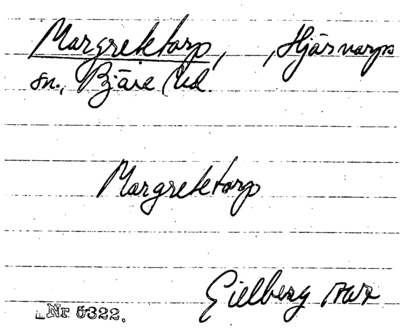 Margretetorp, , Hjärnarps
sn., Bjäre hd.
Margretetorp
Gillberg 1767
Nr 5322.